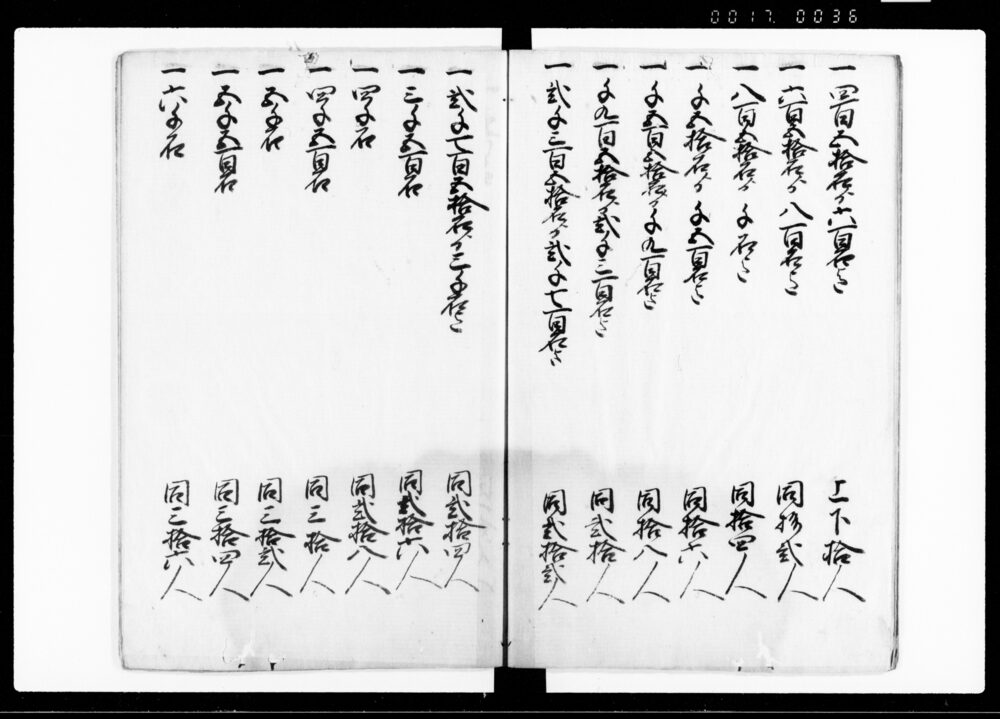 0017. 0036
一 四百五拾石ゟ六百石迄 上下拾人
一 六百五拾石ゟ八百石迄 同拾弐人
一 八百五拾石ゟ千石迄 同拾四人
一 千五拾石ゟ千五百石迄 同拾六人
一 千五百五拾石ゟ千九百石迄 同拾八人
一 千九百五拾石ゟ弐千三百石迄 同弐拾人
一 弐千三百五拾石ゟ弐千七百石迄 同弐拾弐人
一 弐千七百五拾石ゟ三千石迄 同弐拾四人
一 三千五百石 同弐拾六人
一 四千石 同弐拾八人
一 四千五百石 同三拾人
一 五千石 同三拾弐人
一 五千五百石 同三拾四人
一 六千石 同三拾六人